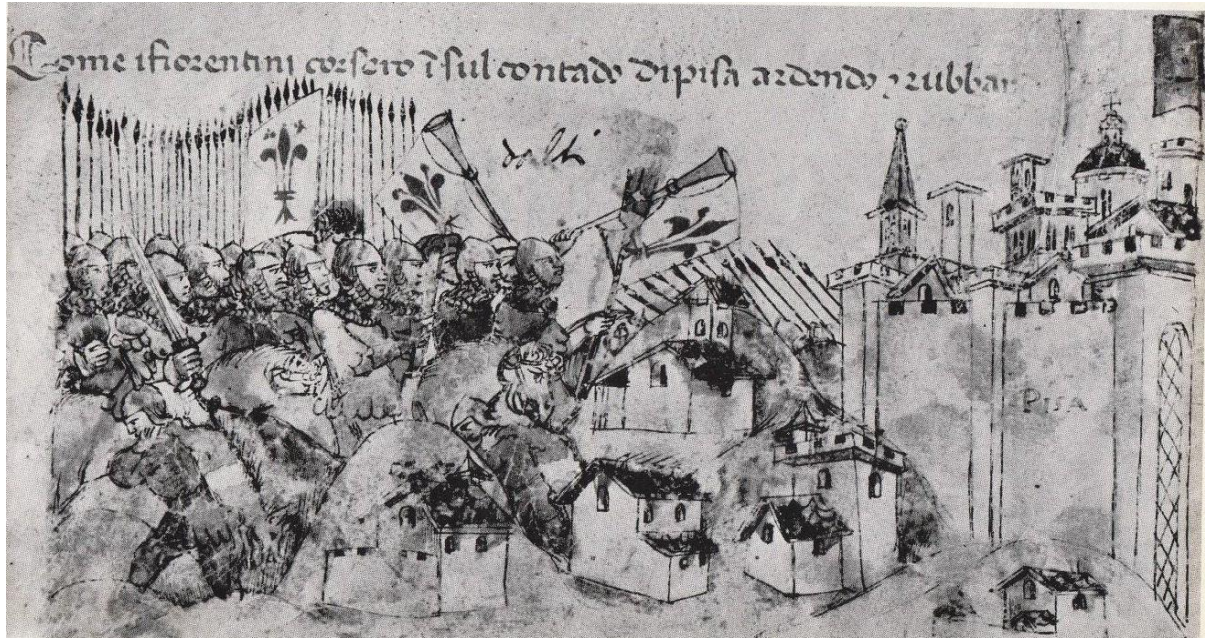 Come ifiorentini corsero ĩ sul contado dipisa ardendo ⁊ rubban
PISA